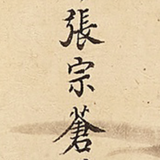 張宗蒼